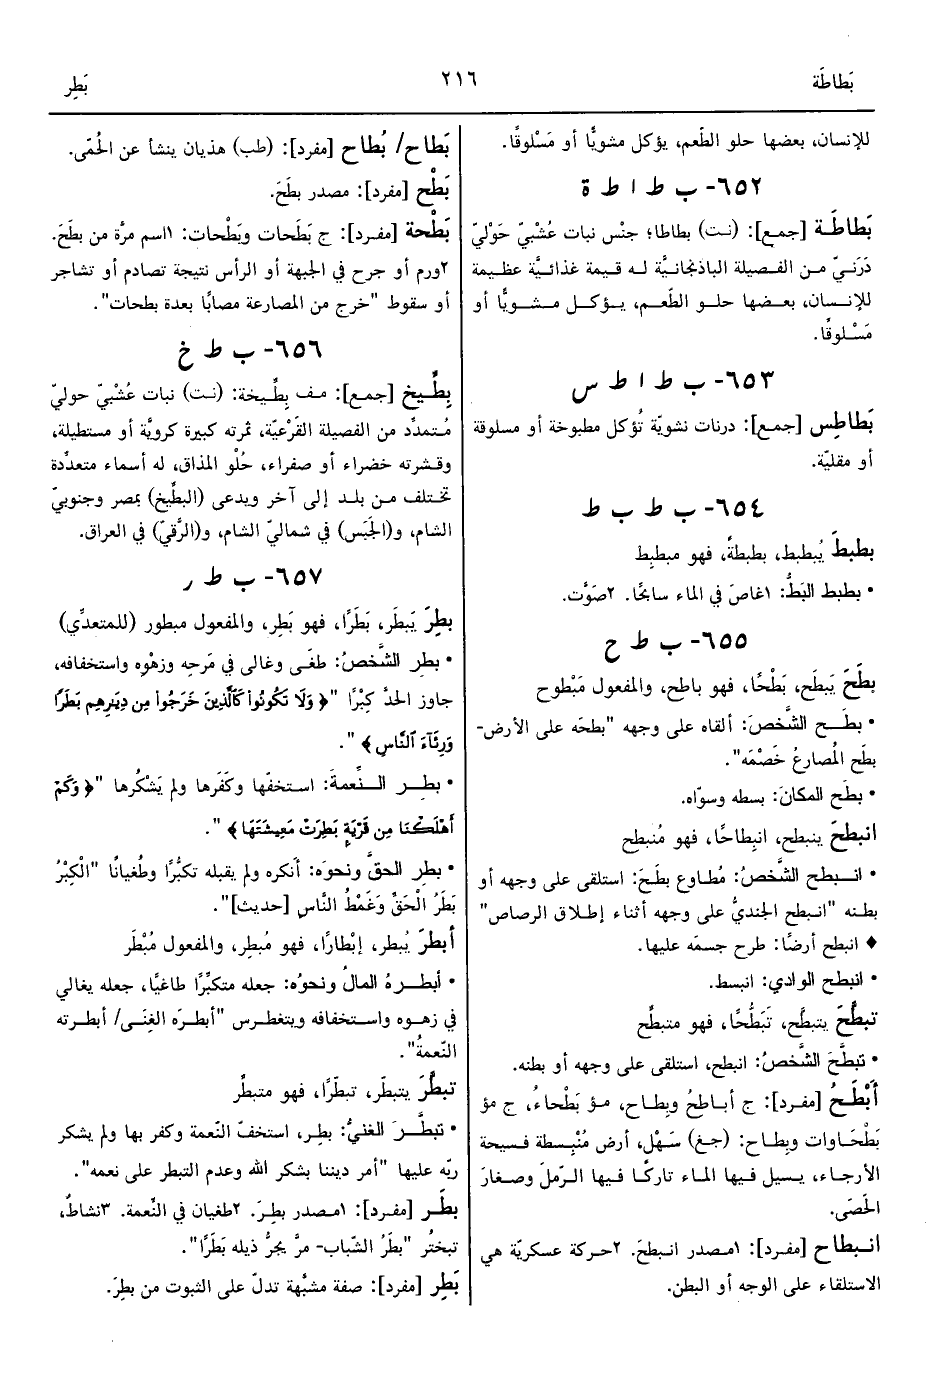 بَطاطَة
٢١٦
بَطِر
للإنسان، بعضها حلو الطّعم، يؤكل مشويًّا أو مَسْلوقًا.
٦٥٢- ب ط ا ط ة
بَطاطَة [جمع]: (نت) بطاطا؛ جنْس نبات عُشْبيّ حَوْليّ
دَرَنيّ من الفصيلة الباذنجانيَّة له قيمة غذائيَّة عظيمة
للإنسان، بعضها حلو الطّعم، يؤكل مشويًّا أو
مَسْلوقًا.
٦٥٣- ب ط ا ط س
بَطاطِس [جمع]: درنات نشويّة تُؤكل مطبوخة أو مسلوقة
أو مقليّة.
٦٥٤- ب ط ب ط
بطبطَ يُبطبط، بطبطةً، فهو مبطبِط
• بطبط البَطُّ: ١غاصَ في الماء سابحًا. ٢صَوَّت.
٦٥٥- ب ط ح
بطَحَ يَبطَح، بَطْحًا، فهو باطِح، والمفعول مَبْطوح
• بطَح الشَّخصَ: ألقاه على وجهه "بطحَه على الأرض-
بطَح المُصارعُ خَصْمَه".
• بطَح المكانَ: بسطه وسوّاه.
انبطحَ ينبطح، انبِطاحًا، فهو مُنبطِح
• انبطح الشَّخصُ: مُطاوع بطَحَ: استلقى على وجهه أو
بطنه "انبطح الجنديُّ على وجهه أثناء إطلاق الرصاص"
♦ انبطح أرضًا: طرح جسمَه عليها.
• انبطح الوادي: انبسط.
تبطَّحَ يتبطَّح، تَبَطُّحًا، فهو متبطِّح
• تبطَّحَ الشَّخصُ: انبطح، استلقى على وجهه أو بطنه.
أَبْطَحُ [مفرد]: ج أباطِحُ وبِطاح، مؤ بَطْحاءُ، ج مؤ
بَطْحَاوات وبِطاح: (جغ) سَهْل، أرض مُنْبِسطة فسيحة
الأرجاء، يسيل فيها الماء تاركًا فيها الرّملَ وصغارَ
الحَصَى.
انبطاح [مفرد]: ١مصدر انبطحَ. ٢حركة عسكريّة هي
الاستلقاء على الوجه أو البطن.
بَطاح/ بُطاح [مفرد]: (طب) هذيان ينشأ عن الحُمّى.
بَطْح [مفرد]: مصدر بطَحَ.
بَطْحة [مفرد]: ج بَطَحات وبَطْحات: ١اسم مرّة من بطَحَ.
٢ورم أو جرح في الجبهة أو الرأس نتيجة تصادم أو تشاجر
أو سقوط "خرج من المصارعة مصابًا بعدة بطحات".
٦٥٦- ب ط خ
بِطِّيخ [جمع]: مف بِطِّيخة: (نت) نبات عُشْبيّ حوليّ
مُتمدِّد من الفصيلة القَرْعيّة، ثمرته كبيرة كرويَّة أو مستطيلة،
وقشرته خضراء أو صفراء، حُلْو المذاق، له أسماء متعدِّدة
تختلف من بلد إلى آخر ويدعى (البطِّيخ) بمصر وجنوبيّ
الشام، و(الحَبَس) في شماليّ الشام، و(الرَّقيّ) في العراق.
٦٥٧- ب ط ر
بطِرَ يَبطَر، بَطَرًا، فهو بَطِر، والمفعول مبطور (للمتعدِّي)
• بطِر الشَّخصُ: طغَى وغالى في مَرحِه وزهْوِه واستخفافه،
جاوز الحدَّ كِبْرًا "﴿ وَلَا تَكُونُوا كَالَّذِينَ خَرَجُوا مِن دِيَٰرِهِم بَطَرًا
وَرِئَآءَ ٱلنَّاسِ ﴾".
• بطِر النِّعمةَ: استخفّها وكَفَرها ولم يَشْكُرها "﴿ وَكَمْ
أَهْلَكْنَا مِن قَرْيَةٍ بَطِرَتْ مَعِيشَتَهَا ﴾".
• بطِر الحقَّ ونحوَه: أنكره ولم يقبله تكبُّرًا وطُغيانًا "الْكِبْرُ
بَطَرُ الْحَقِّ وَغَمْطُ النَّاس [حديث]".
أبطرَ يُبطِر، إبْطارًا، فهو مُبطِر، والمفعول مُبْطَر
• أبطرهُ المالُ ونحوُه: جعله متكبِّرًا طاغيًا، جعله يغالي
في زهوه واستخفافه ويتغطرس "أبطرَه الغِنَى/ أبطرته
النّعمةُ".
تبطَّرَ يتبطَّر، تبطّرًا، فهو متبطِّر
• تبطَّرَ الغنيُّ: بطِر، استخفّ النّعمة وكفر بها ولم يشكر
ربّه عليها "أمر ديننا بشكر الله وعدم التبطر على نعمه".
بطَر [مفرد]: ١مصدر بطِرَ. ٢طغيان في النِّعمة. ٣نشاطٌ،
تبختُر "بطَرُ الشَّباب- مرَّ يجرُّ ذيله بَطَرًا".
بَطِر [مفرد]: صفة مشبَّهة تدلّ على الثبوت من بطِرَ.